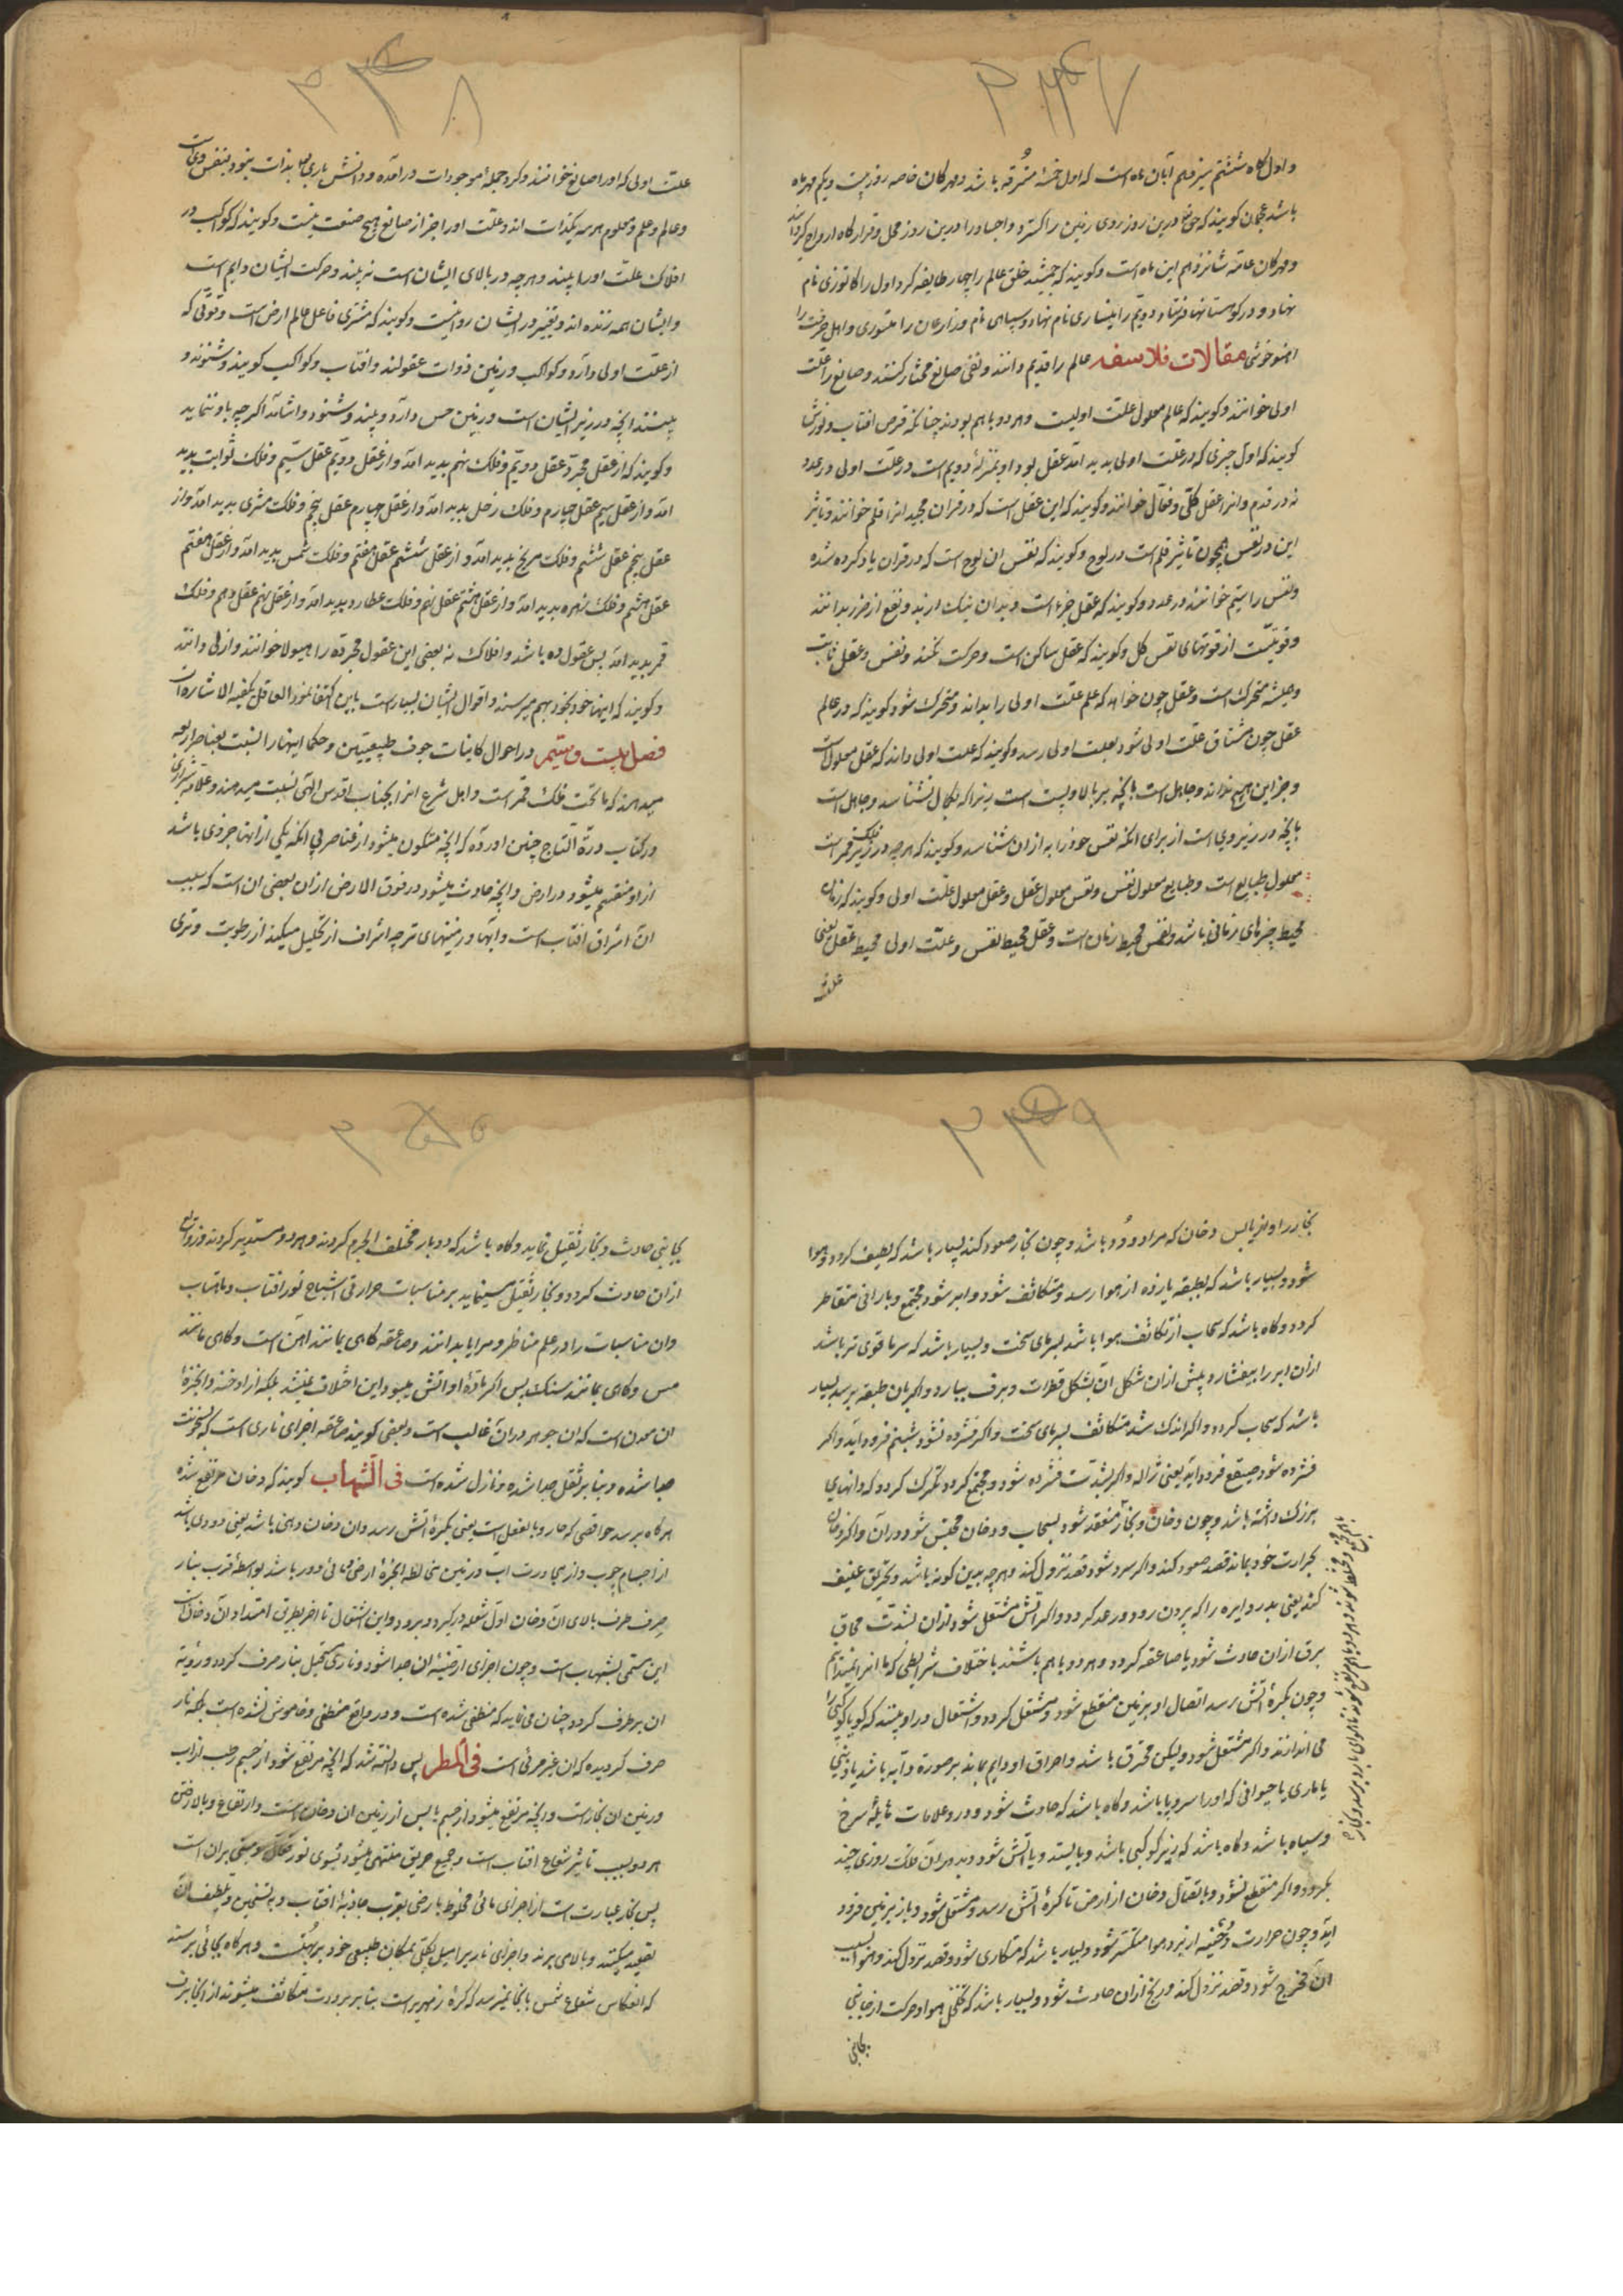 ۳۳۷
و اول کاه ششتم سیزدهم آبان ماه است که اول خمسهٔ مسترقه باشد و مهرکان خاصه روز بیست و یکم مهرماه
باشد عجمان کویند که حق درین روز روی زمین را کسترد و اجساد را درین روز محل و قرارکاه ارواح کردانید
و مهرکان عامه شانزدهم این ماه است و کویند که جمشید خلق عالم را چهار طایفه کرد اول را کاتوزی نام
نهاد و در کوهستانها فرستاد دویم را نیساری نام نهاد و سپاهی نام و زارعان را نسودی و اهل حرفت را
اهنوخوشی مقالات فلاسفه عالم را قدیم دانند و نفی صانع مختار کنند و صانع را علت
اولی خوانند و کویند که عالم معلول علت اولیست و هر دو باهم بودند چنانکه قرص افتاب و نورش
کویند که اول چیزی که در علت اولی پدید امد عقل بود او بمنزلهٔ دویم است در علت اولی در عدد
نه در قدم و انرا عقل کلی و فعال خوانند و کویند که این عقل است که در قران مجید انرا قلم خوانند و تاثیر
این در نفس همچون تاثیر قلم است در لوح و کویند که نفس ان لوح است که در قران یاد کرده شده
و نفس را سیم خوانند در عدد و کویند که عقل جزء است و بدان نیک از بد و نفع از ضرر بدانند
و قوتیست از قوتهای نفس کل و کویند که عقل ساکن است و حرکت نکند و نفس و عقل ثابت
و همیشه متحرک است و عقل چون خواهد که علم علت اولی را بداند متحرک شود کویند که در عالم
عقل چون مشتاق علت اولی شود بعلت اولی رسد و کویند که علت اولی داند که عقل معلول است
و جز این هیچ نداند و جاهل است بانچه بر بالا و پست است زیرا که بکمال نشناسد و جاهل است
بانچه در زیر وی است از برای انکه نفس خود را به از ان شناسد و کویند که هرچه در زیر فلک قمر است
معلول طبایع است و طبایع معلول نفس و نفس معلول عقل و عقل معلول علت اولی و کویند که زمان
محیط چیزهای زمانی باشد و نفس محیط زمان است و عقل محیط نفس و علت اولی محیط عقل یعنی
علت
۳۳۸
علت اولی که او را صانع خوانند و کرد جمله موجودات درآمده و دانش باری بذات خود بنفس وی است
و عالم و علم و معلوم هر سه یکذات اند و علت او را جز از صانع هیچ صنعت نیست و کویند که کواکب در
افلاک علت او را بینند و هرچه در بالای ایشان است نه بینند و حرکت ایشان دایم است
و ایشان همه زنده اند و تغییر در ایشان روا نیست و کویند که مشتری فاعل عالم ارض است و قوتی که
از علت اولی دارد و کواکب و زمین ذوات عقولند و افتاب و کواکب کویند و شنوند و
بینند انچه در زیر ایشان است و زمین حس دارد و بیند و شنود و اشامد اکرچه باو ننماید
و کویند که از عقل مجرد عقل دویم و فلک نهم پدید امد و از عقل دویم عقل سیم و فلک ثوابت پدید
امد و از عقل سیم عقل چهارم و فلک زحل پدید امد و از عقل چهارم عقل پنجم و فلک مشتری پدید امد و از
عقل پنجم عقل ششم و فلک مریخ پدید امد و از عقل ششم عقل هفتم و فلک شمس پدید امد و از عقل هفتم
عقل هشتم و فلک زهره پدید امد و از عقل هشتم عقل نهم و فلک عطارد پدید امد و از عقل نهم عقل دهم و فلک
قمر پدید امد پس عقول ده باشد و افلاک نه بعضی این عقول مجرده را هیولا خوانند و ازلی دانند
و کویند که اینها خود بخود بهم میرسند و اقوال ایشان بسیار است باین اکتفا نمود العاقل یکفیه الاشاره
فصل بیست و ستیم در احوال کاینات جوف طبیعیین و حکما اینها را نسبت بعناصر اربعه
میدهند که ماتحت فلک قمر است و اهل شرع انرا بجناب اقدس الهی نسبت میدهند و علامه شیرازی
در کتاب درة التاج چنین اورده که انچه متکون میشود از عناصر بی انکه یکی از انها جزوی باشد
از او منقسم میشود در ارض و انچه حادث میشود در فوق الارض از ان بعضی ان است که سبب
ان اشراق افتاب است و ابها و زمینهای تر چه اشراق از تحلیل میکند از رطوبت و تری
۳۳۹
بخار را و از یابس دخان که مراد دود باشد و چون بخار صعود کند بسیار باشد که لطیف کردد و هوا
شود و بسیار باشد که بطبقه بارده از هوا رسد و متکاثف شود و ابر شود و مجتمع و بارانی متقاطر
کردد و کاه باشد که سحاب از تکاثف هوا باشد بسرمای سخت و بسیار باشد که سرما قوی تر باشد
از ان ابر را بیفشارد پیش از ان شکل ان بشکل قطرات و برف ببارد و اکر بان طبقه نرسد بسیار
باشد که سحاب کردد و اکر اندک شد متکاثف بسرمای سخت و اکر فسرده نشود شبنم فرود آید و اکر
فسرده شود صقیع فرود آید یعنی ژاله و اکر بشدت فسرده شود و مجتمع کردد تکرک کردد که دانهای
بزرک داشته باشد و چون دخان و بخار منعقد شود بسحاب و دخان محتبس شود در آن و اکر دخان
بحرارت خود بماند قصد صعود کند و اکر سرد شود قصد نزول کند و هرچه بدین کونه باشد و تحریق عنیف
کند یعنی بدرد ابر را که برون رود و رعد کردد و اکر آتش مشتعل شود از ان لشدت محاق
برق از ان حادث شود یا صاعقه کردد و هر دو باهم باشند باختلاف شرایطی که ما انرا نمیدانیم
و چون بکرهٔ آتش رسد اتصال او بزمین منقطع شود و مشتعل کردد و اشتعال در او بینند که کویا کوکبی را
می اندازند و اکر مشتعل شود و لیکن محترق باشد و احراق او دایم بماند بر صورة ذوآبه باشد یا ذنبی
یا ماری یا حیوانی که او را سر و پا باشد و کاه باشد که حادث شود و در و علامات هایلهٔ سرخ
و سیاه باشد و کاه باشد که زیر کوکبی باشد و بایستد و یا آتش شود و بدوران فلک روزی چند
بکردد و اکر منقطع نشود و باتصال دخان از ارض تا کرهٔ آتش رسد و مشتعل شود و باز بزمین فرود
آید و چون حرارت دخنیه از برد هوا منکسر شود و بسیار باشد که متکاری شود و قصد نزول کند و هوا بسبب
ان متموج شود و قصد نزول کند و ریح از ان حادث شود و بسیار باشد که تخلخل هوا و حرکت از جانبی
بجانبی
بجانبی حادث و بخار ثقیل نماید و کاه باشد که دو باد مختلف الجرم کردند و هر دو مستدیر کردند و زوابع
از ان حادث کردد و بخار ثقیل مینماید بر مناسبات حرارتی اشباح نور افتاب و ماهتاب
و ان مناسبات را در علم مناظر و مرایا بدانند و صاعقه کاهی بمانند آهن است و کاهی مانند
مس و کاهی بمانند سنک پس اکر مادهٔ او اتش میبود این اختلاف نمیشد بلکه از ادخنه و ابخرهٔ
ان معدن است که ان جوهر در ان غالب است و بعضی کویند صاعقه اجزای ناری است که بسخونت
جدا شده و بنابر ثقل جدا شده و نازل شده است فی الشهاب کویند که دخان مرتفع شده
هرکاه برسد مواضعی که حار و بالفعل است یعنی بکرهٔ اتش رسد و ان دخان دهنی باشد یعنی دودی باشد
از اجسام چرب و از مجاورت اب و زمین مخالطه ابخرهٔ ارضی مائی دور باشد بواسطهٔ قرب بنار
صرف طرف بالای ان دخان اول شعله درکیرد و برود و این اشتعال تا اخر بطریق امتداد ان دخان است
این مسمی بشهاب است و چون اجزای ارضیهٔ ان جدا شود و ناری مستحیل بنار صرف کردد و رؤیة
ان برطرف کردد چنان می نماید که منطفی شده است و در واقع منطفی و خاموش نشده است بلکه نار
صرف کردیده که ان غیر مرئی است فی المطر پس دانسته شد که انچه مرتفع شود از جسم رطب از اب
و زمین ان بخار است و انچه مرتفع میشود از جسم یابس از زمین ان دخان است و ارتفاع و بالا رفتن
هر دو بسبب تاثیر شعاع افتاب است و جمیع حریق منتهی میشود بسوی نور فلک
پس بخار عبارت است از اجزای مائی مخلوط بارضی بقرب جاذبهٔ افتاب و به تسخین و تلطیف ان
تصعید میکند و بالا می برند و اجزای ناریه را میل بکلی بمکان طبیعی خود بر تبست و هرکاه بجائی برسند
که انعکاس شعاع شمس بانجا نمیرسد که کرهٔ زمهریر است بنابر برودت متکاثف میشوند از ابخرت